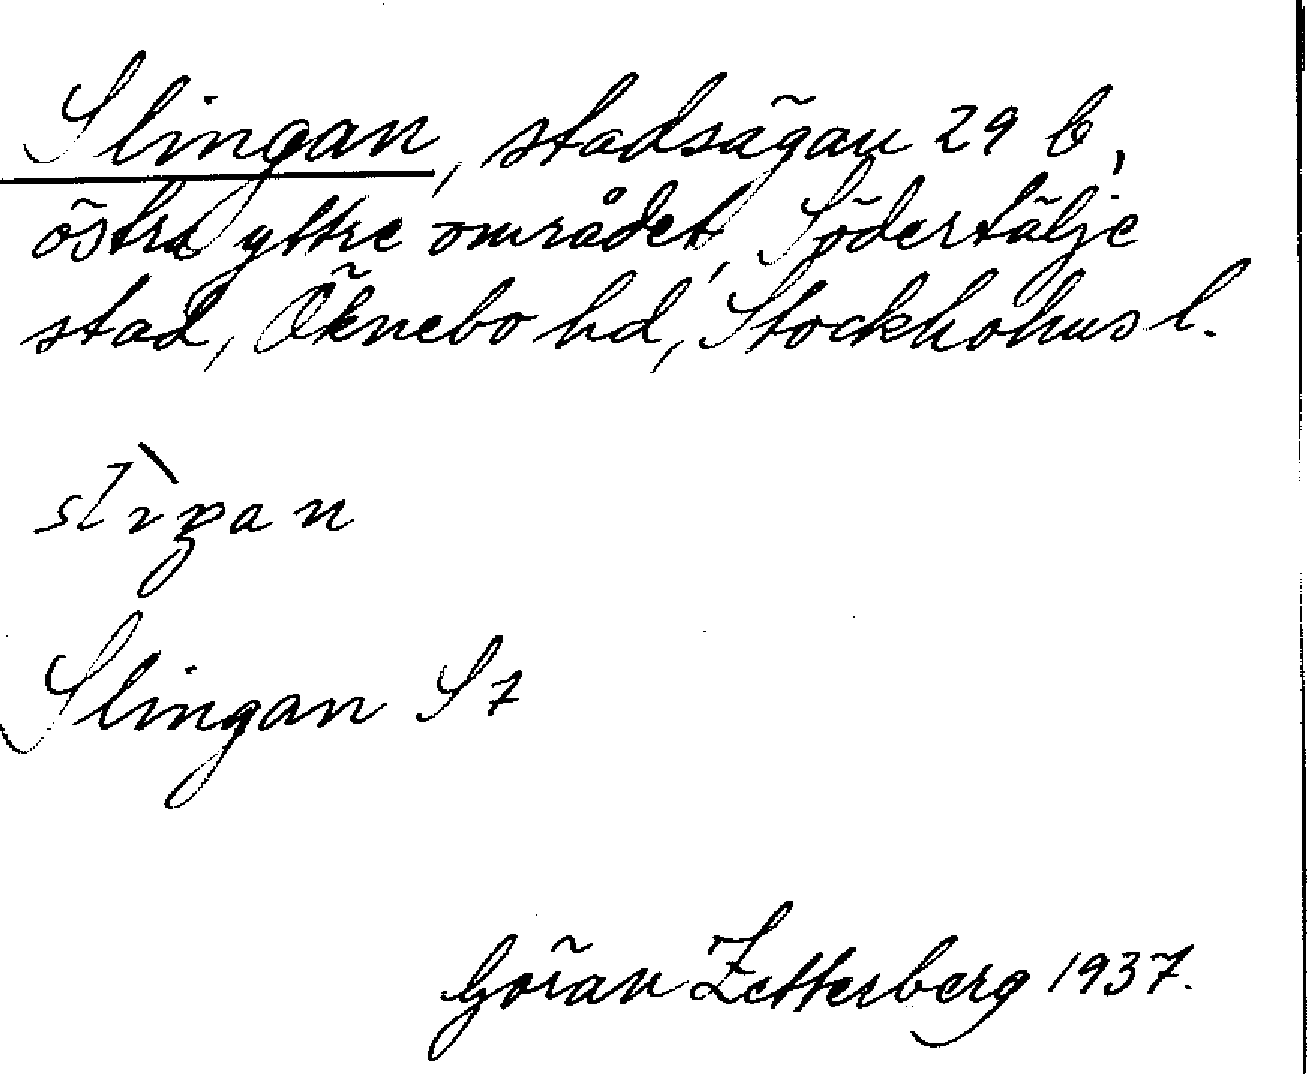 Slingan, stadsägan 29 b,
östra yttre området, Södertälje
stad, Öknebo hd, Stockholms l.
Slingan S 7
Göran Zetterberg 1937.